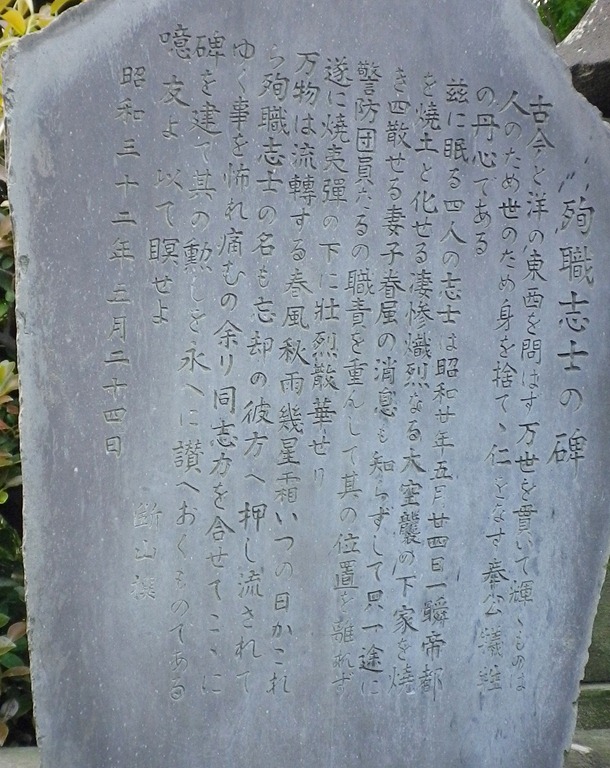 殉職志士の碑
古今と洋の東西を問はす万世を貫いて輝くものは
人のため世のため身を捨てゝ仁をなす奉公犠牲
の丹心である
茲に眠る四人の志士は昭和廿年五月廿四日一瞬帝都
を焼土と化せる凄惨熾烈なる大空襲の下家を焼
き四散せる妻子眷属の消息も知らずして只一途に
警防団員たるの職責を重んして其の位置を離れず
遂に焼夷彈の下に壯烈散華せり
万物は流轉する春風秋雨幾星霜いつの日かこれ
ら殉職志士の名も忘却の彼方へ押し流されて
ゆく事を怖れ痛むの余り同志力を合せてこゝに
碑を建て其の勳しを永へに讃へおくものである
噫 友よ 以て瞑せよ
昭和三十二年 五月二十四日
断山撰